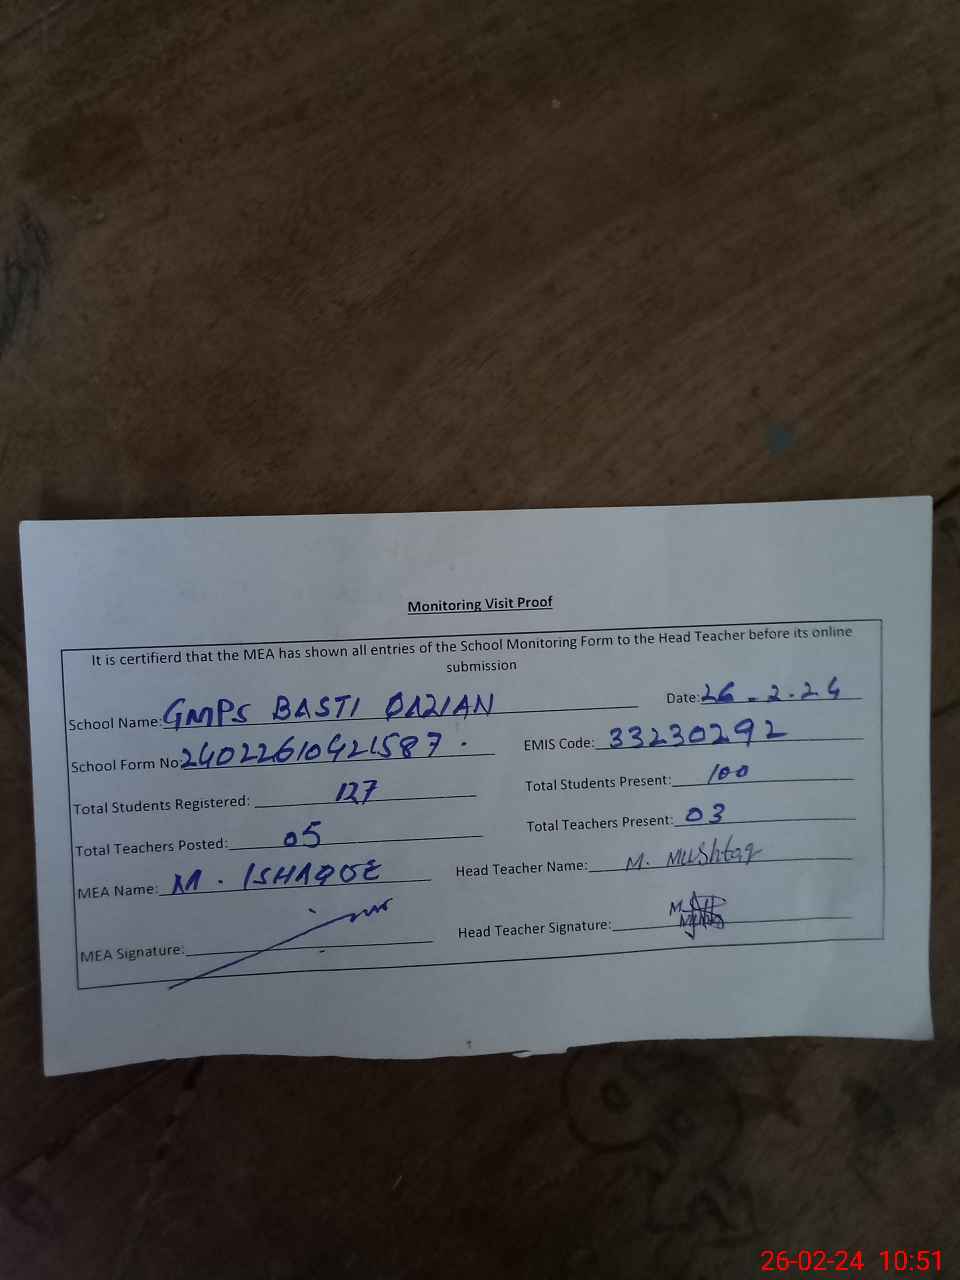 Monitoring Visit Proof
It is certifierd that the MEA has shown all entries of the School Monitoring Form to the Head Teacher before its online
submission
School Name: GMPS BASTI Date: 26-2-24
School Form No: 24022610421587. EMIS Code: 33230292
Total Students Registered: 127 Total Students Present: 100
Total Teachers Posted: 05 Total Teachers Present: 03
MEA Name: M. ISHAQUE Head Teacher Name: M. Mushtaq
MEA Signature: Head Teacher Signature:
26-02-24 10:51